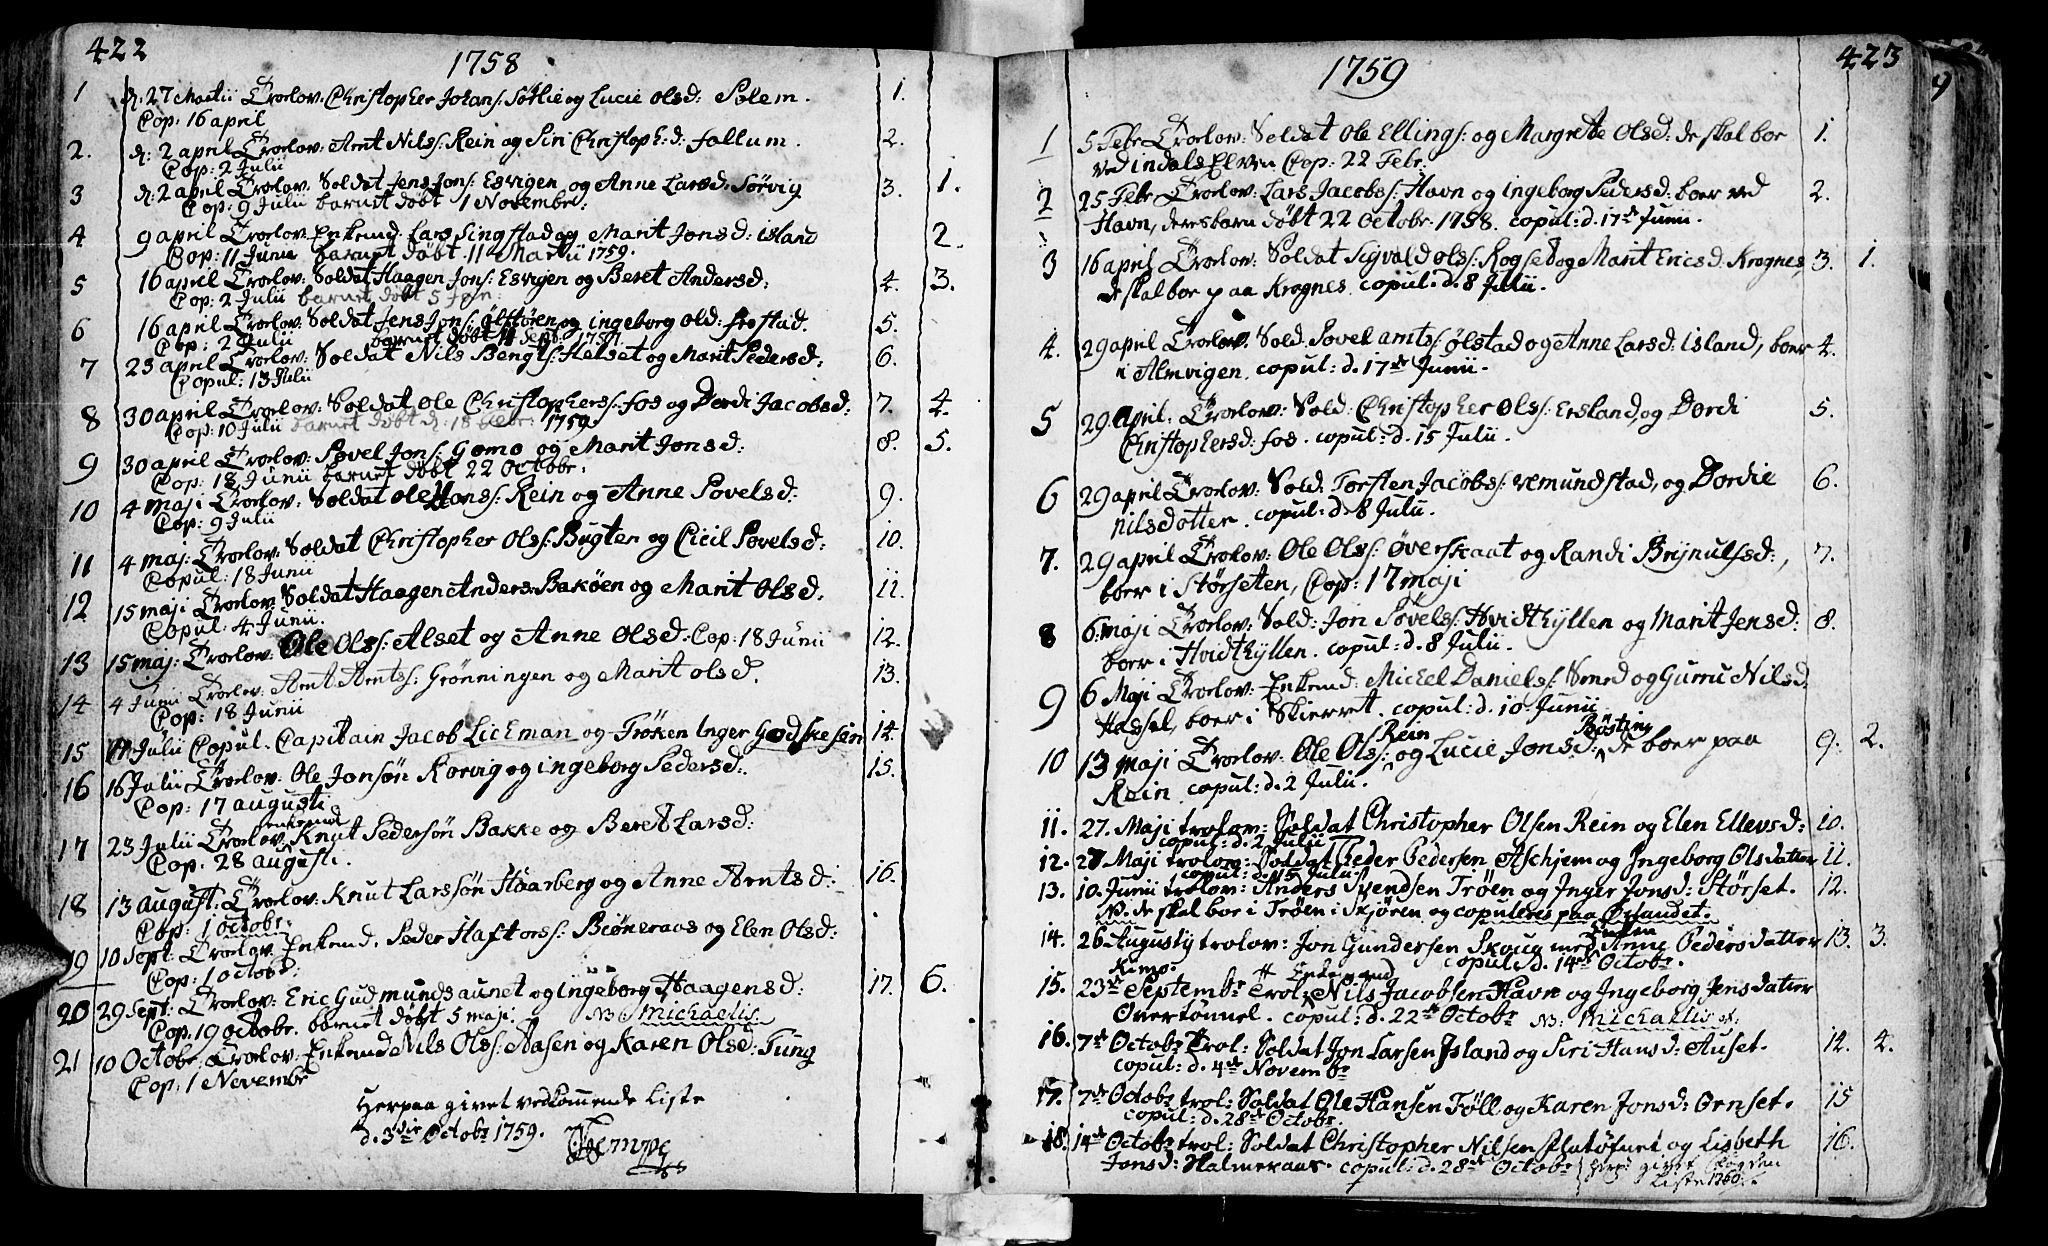 422
1758
1 d: 27 Martii Trolov: Christopher Johans: Søtlie og Lucie Olsd: Solem. 1.
Cop: 16 april
2. d: 2 april Trolov: Arnt Nils: Rein og Siri Christoph: d: fallum. 2.
Cop: 2 Julii
3 d: 2 april Trolov: Soldat Jens Jons: Esvigen og Anne Larsd: Sørvig 3. 1.
Cop: 9 Julii barnet døbt 1 Novembr:
4 9 april Trolov: Enkemd: Lars Singstad og Marit Jonsd: island 2.
Cop: 11 Junii barnet døbt 11 Martii 1759.
5 16 april Trolov: Soldat Haagen Jons: Esvigen og Beret Andersd: 4. 3.
Cop: 2 Julii barnet døbt 5 Jan:
6 16 april Trolov: Soldat Jens Jons: og ingeborg Old: frostad. 5.
Cop: 2 Julii barnet døbt Sept: 1757.
7 23 april Trolov: Soldat Nils Bengts: Helset og Marit Pedersd: 6.
Copul: 13 Julii
8 30 april Trolov: Soldat Ole Christophers: fos og Dordi Jacobsd: 7. 4.
Cop: 10 Julii barnet døbt d: 18 febr: 1759.
9 30 april Trolov: Povel Jons: Gomo og Marit Jonsd: 8. 5.
Cop: 18 Junii barnet døbt 22 Octobr:
10 4 maji Trolov: Soldat Ole Hans: Rein og Anne Povelsd: 9.
Cop: 9 Julii
11 4 maj: Trolov: Soldat Christopher Ols: Bugten og Cicil Povelsd: 10.
Copul: 18 Junii
12 15 maji Trolov: Soldat Haagen Anders: Bakøen og Marit Olsd. 11.
Copul: 4 Junii.
13 15 maj: Trolov: Ole Ols: Alset og Anne Olsd. Cop: 18 Junii 12.
14 4 Junii Trolov: Arnt Arnts: Grønningen og Marit Olsd. 13.
Cop: 18 Junii
15 11 Julii Copul. Capitain Jacob Lickman og Frøken Inger Godskesen 14.
16 16 Julii Trolov: Ole Jonsøn Korvig og ingeborg Pedersd: 15.
Cop: 17 augusti
enkemd
17 23 Julii Trolov: Knut Pedersøn Bakke og Beret Larsd:
Cop. 28 August:.
18 13 august: Trolov: Knut Larssøn Haarberg og Anne Arntsd: 16.
Cop: 1 octobr:
19 10 Sept: Trolov: Enkemd. Peder Haftors: Biøneraas og Elen Olsd:
Cop: 1 octobr:
20 29 Sept: Trolov: Eric Gudmundsaunet og ingeborg Haagensd: 17. 6.
Cop. 19 Octobr. barnet døbt 5 maji. NB Michaelis
21 10 Octobr: Trolov: Enkemd Nils Ols: Aasen og Karen Olsd: Tung
Cop: 1 Novembr
Herpaa givet vedkommende Liste
d. 3die Octobr 1759.
423
1759
1 5 Febr Trolov: Soldat Ole Ellings: og Margrete Olsd: de skal boe 1.
ved indals Elven Cop: 22 Febr.
2 25 Febr Trolov: Lars Jacobs: Havn og ingeborg Pedersd: boer ved 2.
Havn, deres barn døbt 22 Octobr. 1758. copul: d. 17de Junii.
3 16 april Trolov: Soldat Sigvald Ols: Rogsed og Marit Ericsd: Krognes, 3. 1.
de skal boe paa Krognes. copul: d. 8 Julii.
4. 29 april Trolov: Sold. Povel arnts: Ølstad og Anne Larsd: island, boer 4.
i Almvigen. copul: d. 17de Junii.
5 29 april: Trolov: Sold: Christopher Ols: Ersland, og Dordi 5.
Christophersd: fos. copul: d. 15 Julii.
6 29 april Trolov: Sold: Torsten Jacobs: vemundstad, og Dordie 6.
Nilsdotter. copul: d. 8 Julii.
7. 29 april Trolov: Ole Ols: Øverskaat og Randi Brynulfsd:, 7.
boer i Størseten, Cop: 17 maji
8 6 maji Trolov: Sold: Jon Povels: Hvidthyllen og Marit Jensd: 8.
boer i Hvidthyllen. copul: d. 8 Julii.
9 6 Maji Trolov: Enkemd: Michel Daniels: Smed og Gurru Nilsd:
Hassel, boer i Skierret. copul: d. 10 Junii
Rein Bøsting
10 13 maji Trolov: Ole Ols: og Lucie Jonsd: de boer paa 9. 2.
Rein. copul: d. 2 Julii.
11. 27. Maji trolov: Soldat Christopher Olsen Rein og Elen Ellevsd: 10.
copul: d. 2 Julii
12. 27 Maji trolov: Soldat Peder Pedersen Aschjem og Ingeborg Olsdatter 11.
copul: d. 15 Julii
13. 10. Junii trolov: Anders Svendsen Trøen og Inger Jonsd: Størset. 12.
NB. de skal boe i Trøen i Skjøren og copuleres paa Ørlandet.
Enken
14. 26 Augusty trolov: Jon Gundersen Skoug med Anne Pedersdatter 13. 3.
Kimo. copul: d. 14de Octobr.
Enkemand
15. 23de Septembr Trol: Nils Jacobsen Havn og Ingeborg Jensdatter
Overtønnel. copul: d. 22de Octobr NB: Michaelis
16. 7de Octobr Trol: Soldat Jon Larsen Island og Siri Hansd: Auset. 14. 4.
copul: d. 4de Novembr
17. 7de Octobr trol: Soldat Ole Hansen Føll og Karen Jonsd: Ornset. 15
copul: d. 28de Octobr.
18. 14de Octobr trol: Soldat Christopher Nilsen og Lisbeth 16.
Jonsd: Halmeraas. copul: d. 28de Octobr herp: givet
Liste 1760.
9